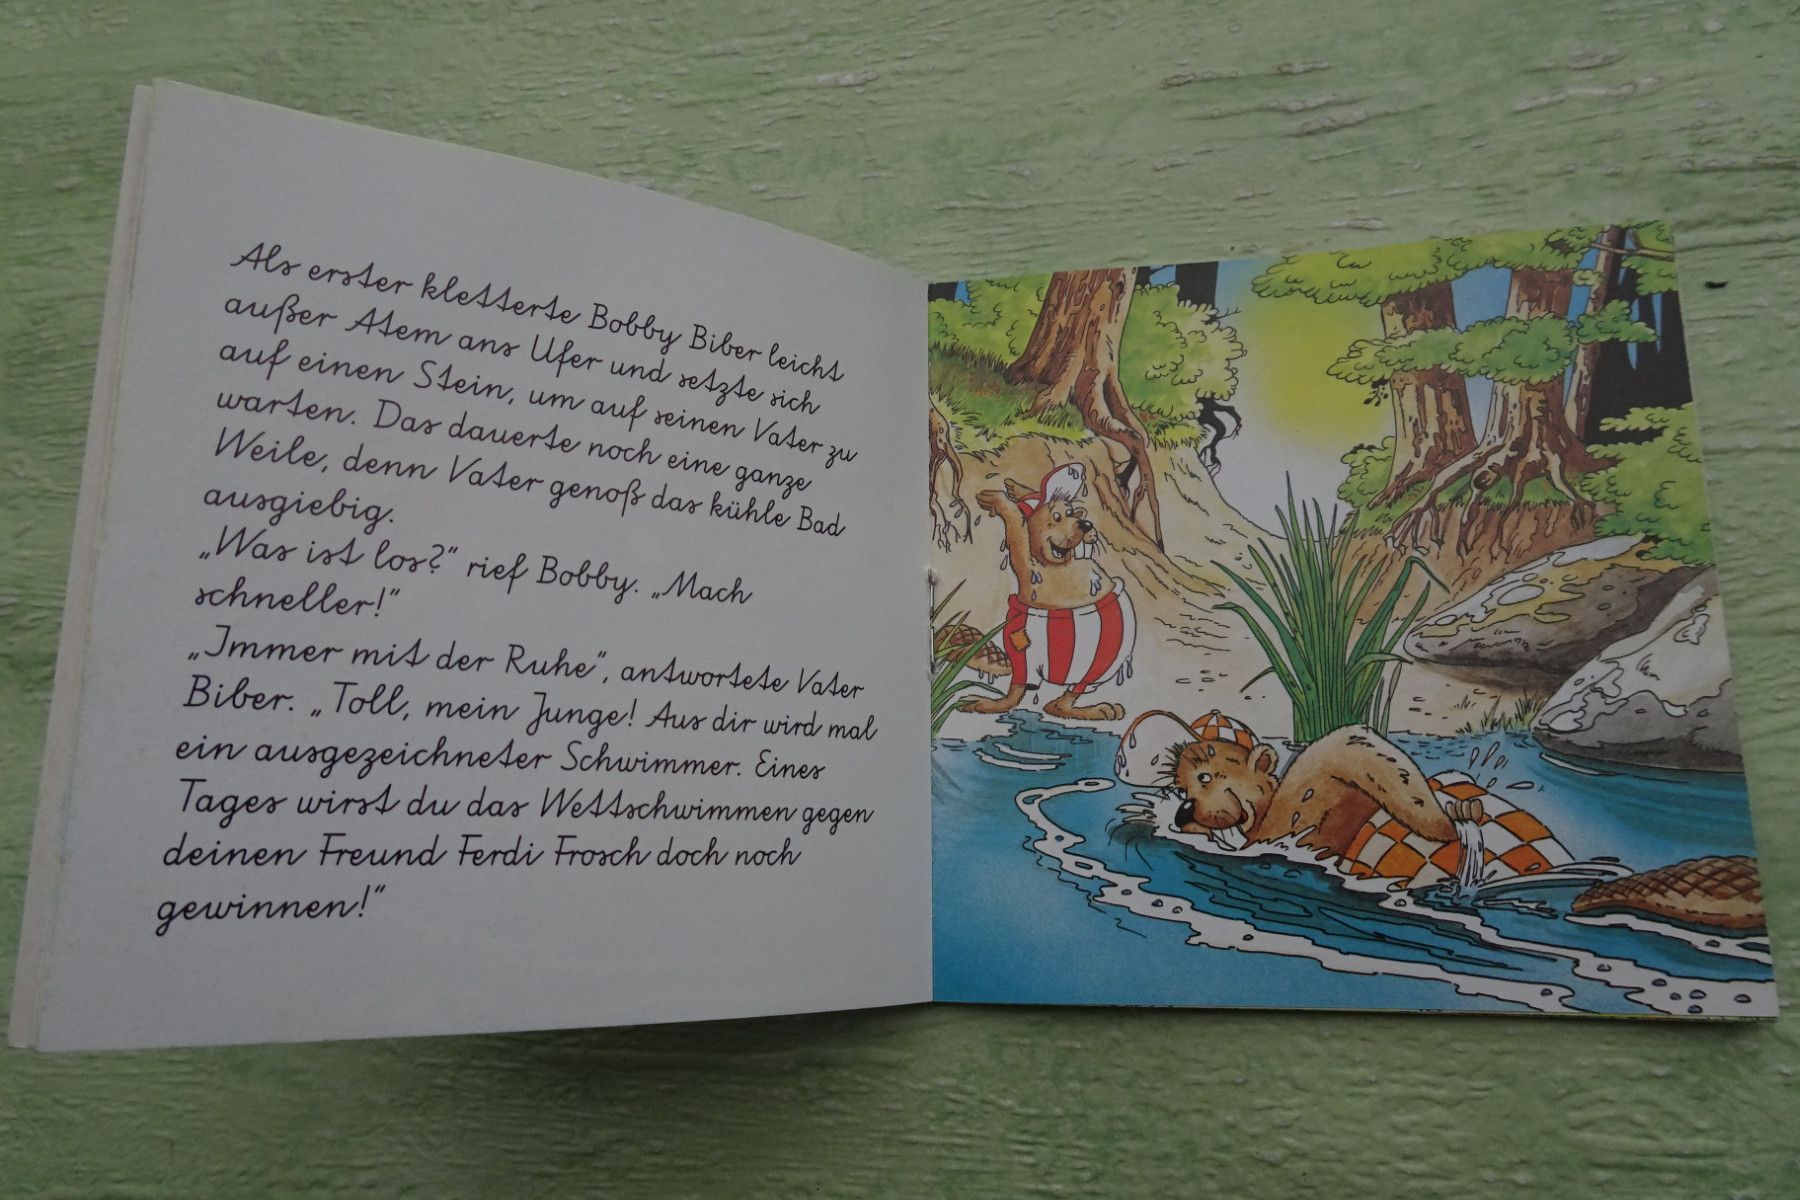 Als erster kletterte Bobby Biber leicht
außer Atem ans Ufer und setzte sich
auf einen Stein, um auf seinen Vater zu
warten. Das dauerte noch eine ganze
Weile, denn Vater genoß das kühle Bad
ausgiebig.
„Was ist los?“ rief Bobby. „Mach
schneller!“
„Immer mit der Ruhe“, antwortete Vater
Biber. „Toll, mein Junge! Aus dir wird mal
ein ausgezeichneter Schwimmer. Eines
Tages wirst du das Wettschwimmen gegen
deinen Freund Ferdi Frosch doch noch
gewinnen!“